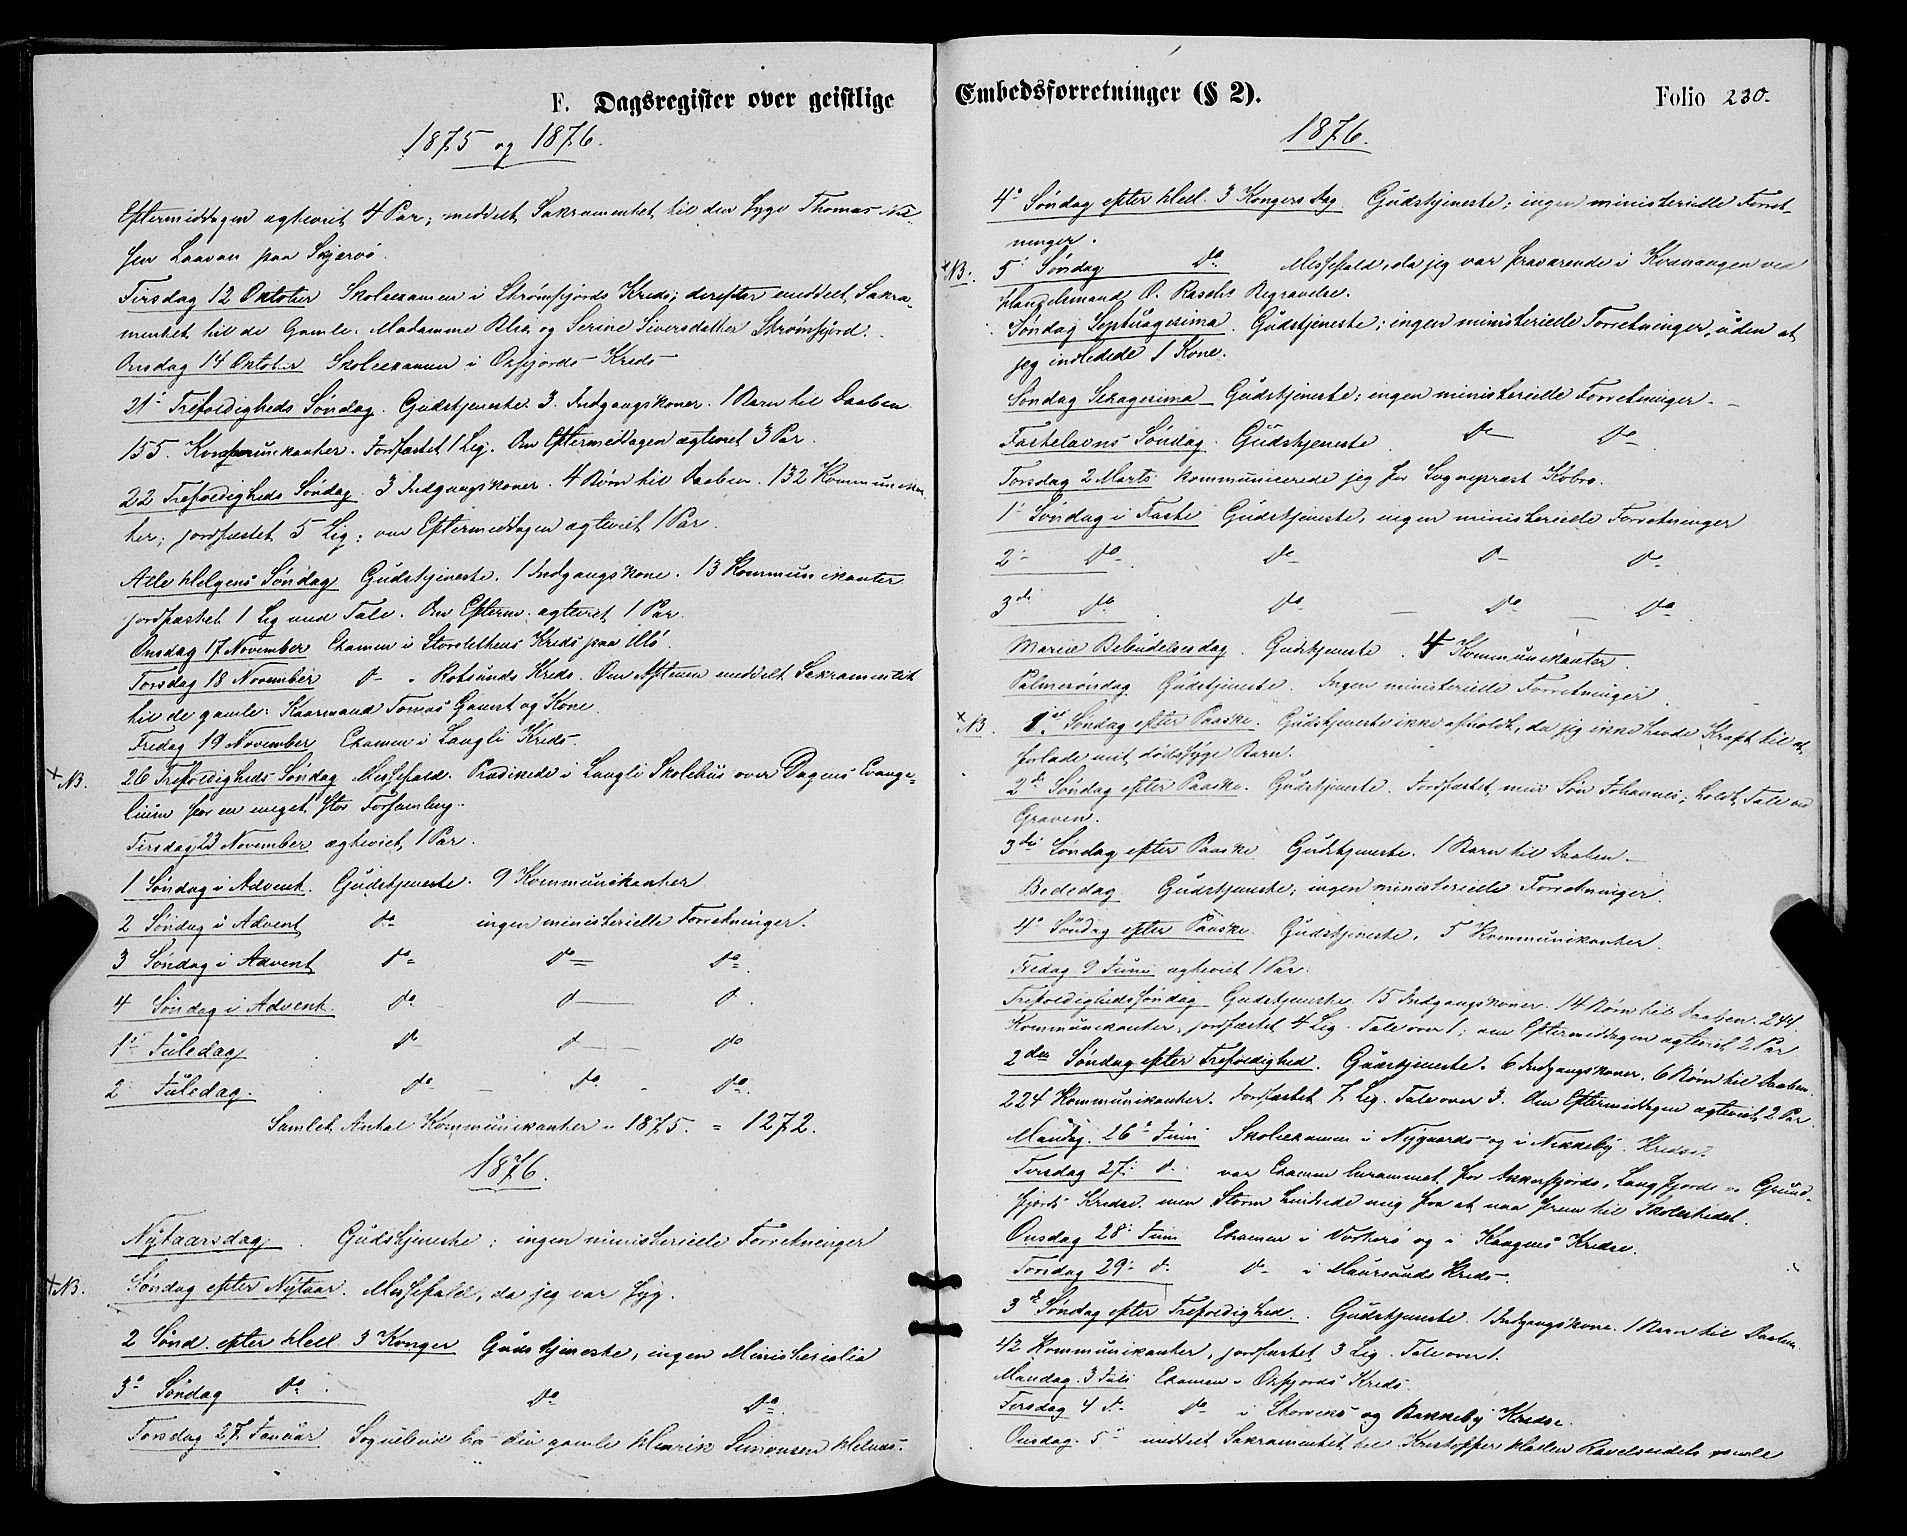 F. Dagsregister over geistlige
1875 og 1876.
Eftermiddagen egteviet 4 Par; meddelt Sakramentet til den syge Thomas Nil
sen Laavan paa Skjervö.
Tirsdag 12 Oktober Skoleexamen i Strömfjords Kreds; derefter meddelt Sakra-
mentet til de Gamle: Madamme Blix og Serine Siversdatter Strömfjord.
Onsdag 14 Oktober Skoleexamen i Oxfjords Kreds
21' Trefoldigheds Söndag. Gudstjeneste. 3. Indgangskoner. 1 Barn til Daaben
155. Kommunikanter. Jordfæstet 1 Lig. Om Eftermiddagen egteviet 3 Par.
22 Trefoldigheds Söndag. 3 Indgangskoner. 4 Börn til Daaben. 132 Kommunikan
ter; jordfæstet 5 Lig; om Eftermiddagen egteviet 1 Par.
Alle Helgens Söndag Gudstjeneste. 1 Indgangskone. 13 Kommunikanter
jordfæstet 1 Lig med Tale. Om Efterm. egteviet 1 Par.
Onsdag 17 November Examen i Storslettens Kreds paa
Torsdag 18 November d- " Rotsunds Kreds. Om Aftenen meddelt Sakramentet
til de gamle: Kaarmand Tomas Gamst og Kone.
Fredag 19 November Examen i Langli Kreds.
+ NB. 26 Trefoldigheds Söndag Messefald. Prædikede i Langli Skolehus over Dagens Evange-
lium for en meget stor Forsamling.
Tirsdag 23 November egteviet 1 Par.
1 Söndag i Advent. Gudstjeneste. 9 Kommunikanter
2 Söndag i Advent do ingen ministerielle Forretninger.
3 Söndag i Advent do do do
4 Söndag i Advent. do d- d.
1' Juledag do d- do
2' Juledag. do do do.
Samlet Antal Kommunikanter i 1875. = 1272.
1876.
Nytaarsdag. Gudstjeneste; ingen ministerielle Forretninger
+ NB. Söndag efter Nytaar. Messefald, da jeg var syg.
2 Sönd. efter Hell. 3 Konger Gudstjeneste, ingen Ministerialia
3' Söndag do. do do.
Torsdag 27. Januar Sognebud hos den gamle Henrik Simonsen
Embedsforretninger (§ 2).
Folio 230.
1876.
4' Söndag efter Hell. 3 Kongers Dag. Gudstjeneste; ingen ministerielle Forret-
ninger.
+ NB. 5' Söndag do Messefald, da jeg var fraværende i Kvænangen ved
Handelsmand O. Raschs Begravelse.
Söndag Septuagesima. Gudstjeneste; ingen ministerielle Forretninger, uden at
jeg indledede 1 Kone.
Söndag Sexagesima Gudstjeneste; ingen ministerielle Forretninger.
Fastelavns Söndag. Gudstjeneste d- do
Torsdag 2 Marts kommunicerede jeg for Sognepræst Kobro.
1' Söndag i Faste Gudstjeneste, ingen ministerielle Forretninger
2' do. do d- d-
3di do. do do do
Mariæ Bebudelsesdag. Gudstjeneste. 4 Kommunikanter.
Palmesöndag Gudstjeneste. Ingen ministerielle Forretninger.
+ NB. 1ste Söndag efter Paaske. Gudstjeneste ikke afholdt, da jeg ikke havde Kraft til at
forlade mit dödssyge Barn.
2den Söndag efter Paaske. Gudstjeneste. Jordfæstet min Sön Johannes; holdt Tale ved
Graven.
3die Söndag efter Paaske. Gudstjeneste. 1 Barn til Daaben.
Bededag Gudstjeneste; ingen ministerielle Forretninger.
4' Söndag efter Paaske. Gudstjeneste. 5 Kommunikanter.
Fredag 9 Juni egteviet 1 Par.
Trefoldighedssöndag Gudstjeneste. 15 Indgangskoner. 14 Börn til Daaben. 244
Kommunikanter, jordfæstet 4 Lig. Tale over 1; om Eftermiddagen egteviet 2 Par
2den Söndag efter Trefoldighed. Gudstjeneste. 6 Indgangskoner. 6 Börn til Daaben.
224 Kommunikanter. Jordfæstet 7 Lig. Tale over 3. Om Eftermiddagen egteviet 2 Par.
Mandag. 26' Juni Skoleexamen i Nygaards og i Nikkeby Kredse.
Tirsdag 27' d. var Examen berammet for Ankerfjords, Langfjords og Grund-
fjords Kredse. men Storm hindrede mig fra at naa frem til Skolestedet.
Onsdag 28' Juni Examen i Vorterö og i Kaagens Kredse.
Torsdag 29' d. do i Maursunds Kreds.
3die Söndag efter Trefoldighed. Gudstjeneste. 1 Indgangskone. 1 Barn til Daaben.
42 Kommunikanter, jordfæstet 3 Lig. Tale over 1.
Mandag. 3 Juli Examen i Oxfjords Kreds.
Tirsdag 4 d- do i Storviks og Bakkeby Kredse.
Onsdag. 5' meddelt Sakramentet til Kristoffer Ravelseidets gamle